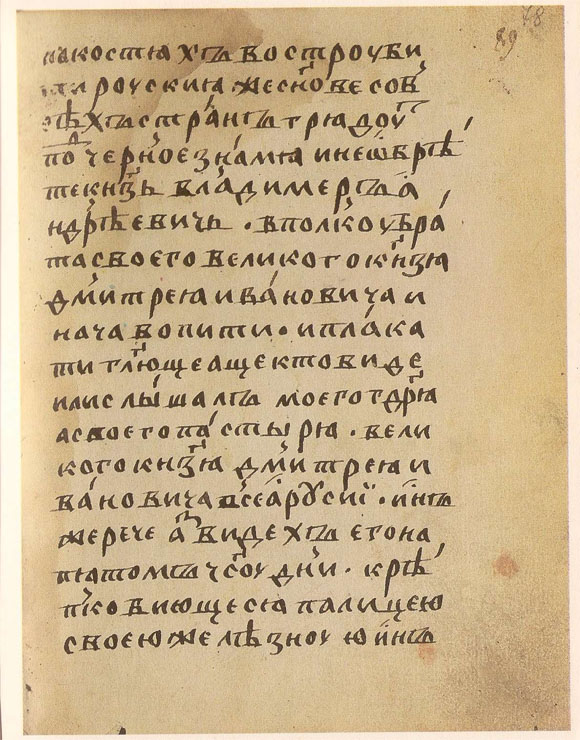 89 78
пакостꙗ хъ востроуби
ша роускиꙗ же сно̑ве собꙋ
сѣхъ стра́нъ трѧ доу
по̑ черное зна́мꙗ и не ѡбрѣ
те кн҃зь влади́меръ а
ндрѣевичь · в полкоу бра́
та своего великого кн҃зꙗ
дми́треꙗ ива́новича и
нача вопити · и пла́ка
ти гл҃юще аще кто виде
или слы́шалъ моего гд҃рꙗ
а своего па́стырꙗ · вели
кого кн҃зꙗ дми́треꙗ и
ва́новича всеа́ рꙋсиї · и́нъ
же рече а҆ видехъ его на
пꙗтомъ чсоу дн҃и · крѣ́
пко биющесꙗ палицею
своею желѣзноу ю и́нъ